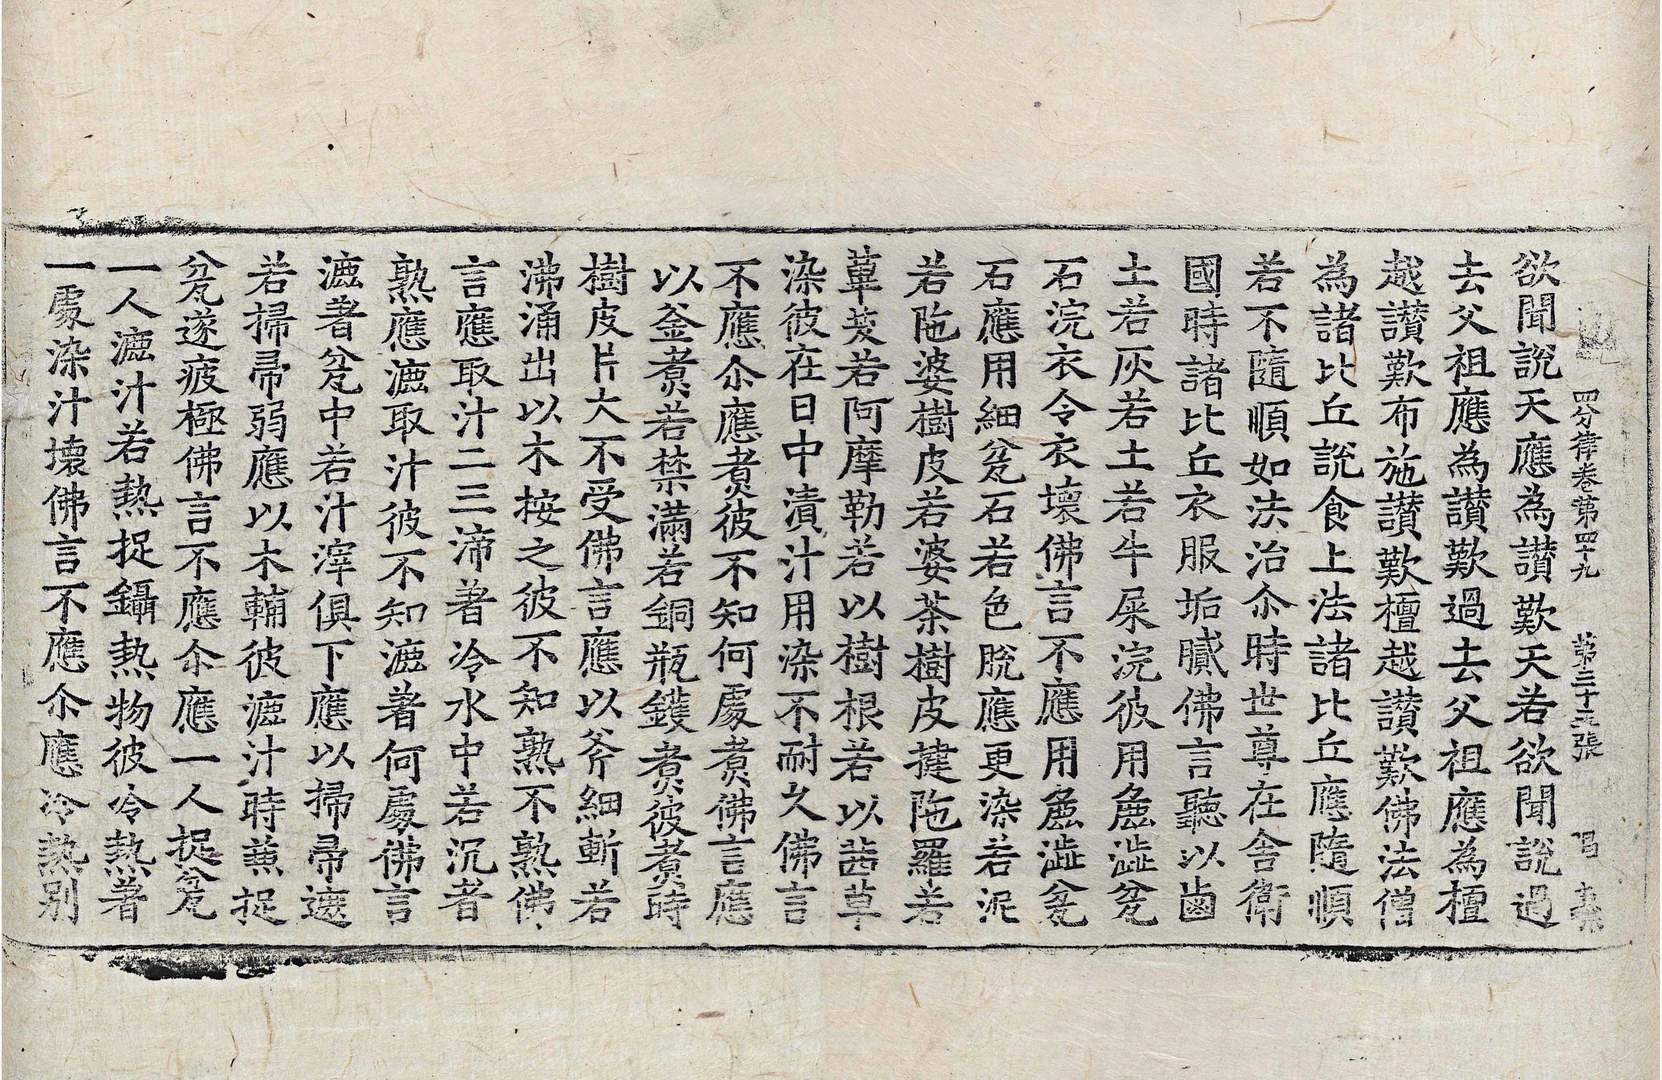 四分律卷第四十九 第三十二張 昌
欲聞說天應為讃歎天若欲聞說過
去父祖應為讃歎過去父祖應為檀
越讃歎布施讃歎檀越讃歎佛法僧
為諸比丘說食上法諸比丘應隨順
若不隨順如法治尒時世尊在舍衛
國時諸比丘衣服垢膩佛言聽以鹵
土若灰若土若牛屎浣彼用麁澁瓫
石浣衣令衣壞佛言不應用麁澁瓫
石應用細瓫石若色脫應更染若泥
若陁婆樹皮若婆茶樹皮揵陁羅若
蓽茇若阿摩勒若以樹根若以茜草
染彼在日中漬汁用染不耐久佛言
不應尒應煑彼不知何處煑佛言應
以釜煑若禁滿若銅瓶鑊煑彼煑時
樹皮片大不受佛言應以斧細斬若
沸涌出以木按之彼不知熟不熟佛
言應取汁二三渧著冷水中若沉者
熟應漉取汁彼不知漉著何處佛言
漉著瓫中若汁滓俱下應以掃帚遮
若掃帚弱應以木輔彼漉汁時兼捉
瓫遂疲極佛言不應尒應一人捉瓫
一人漉汁若熱捉鑷熱物彼冷熱著
一處染汁壞佛言不應尒應冷熱別